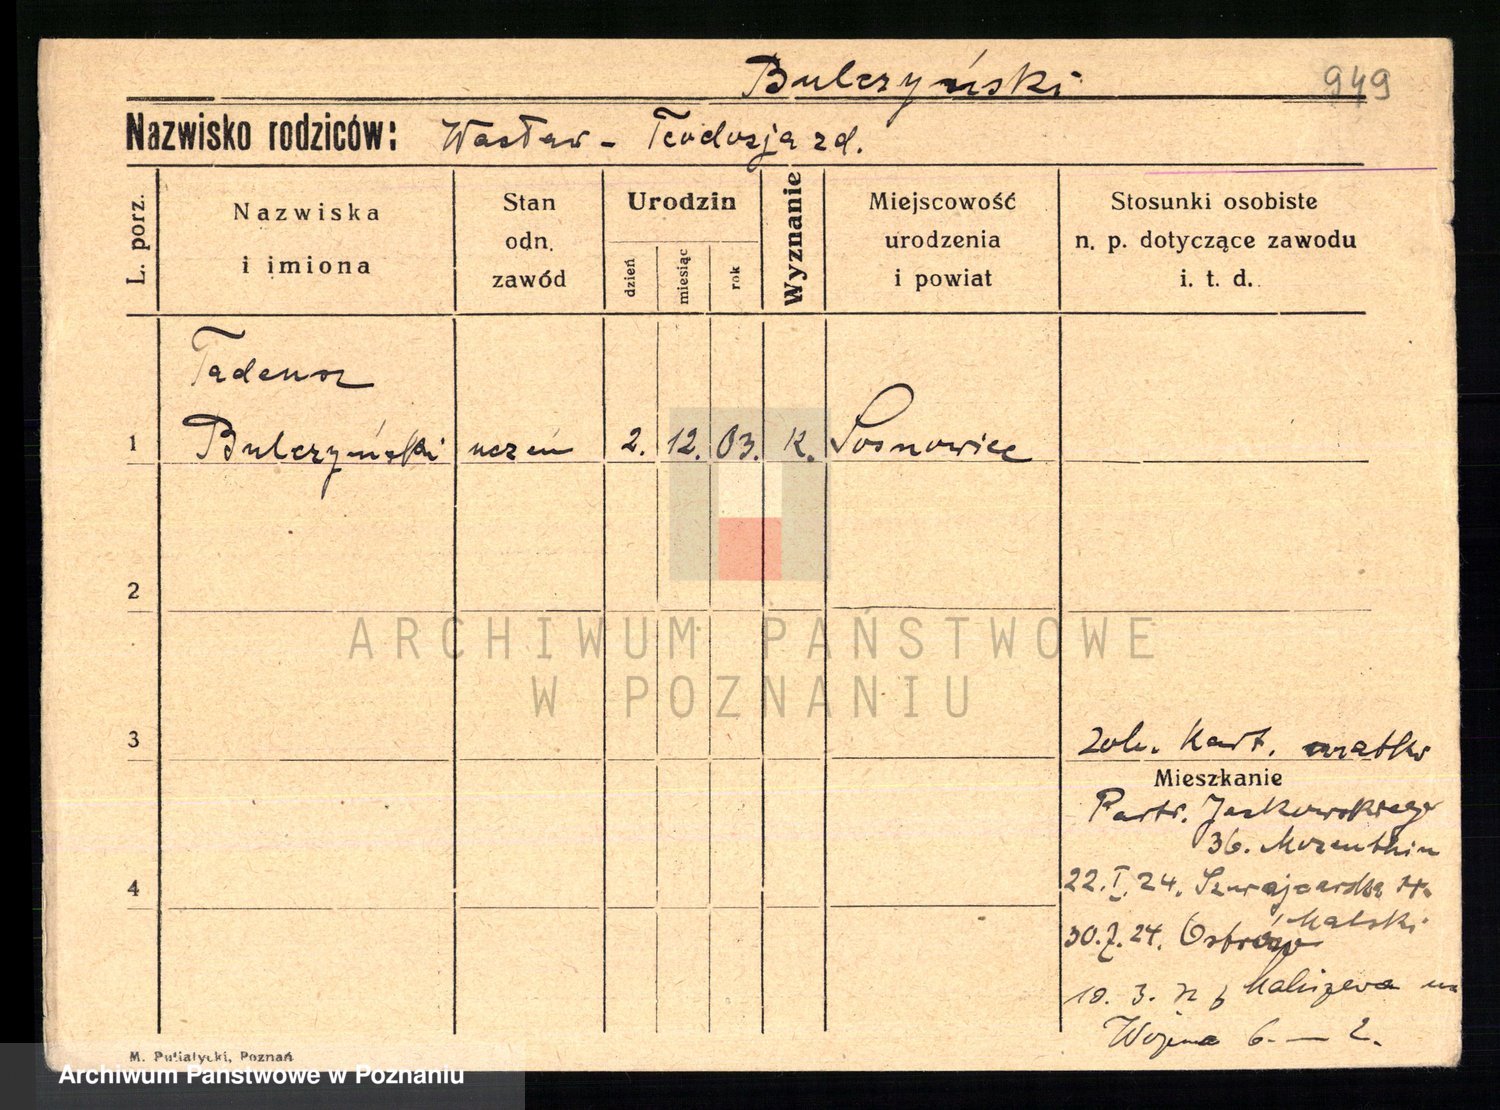 Bulczyński
949
Nazwisko rodziców: Wacław - Teodozja zd.
L. porz.
Nazwiska
i imiona
Stan
odn.
zawód
Urodzin
dzień
miesiąc
rok
Wyznanie
Miejscowość
urodzenia
i powiat
Stosunki osobiste
n. p. dotyczące zawodu
i. t. d.
Tadeusz
1 Bulczyński uczeń 2. 12. 03. K. Sosnowiec
2
ARCHIWUM PAŃSTWOWE
W POZNANIU
3
zob. kart. matki
Mieszkanie
Partr. Jackowskiego
36.
4
22. I. 24. 14.
Malski
30. 7. 24. Ostrów
10. 3.
6. — 2.
M. Putiatycki, Poznań
Archiwum Państwowe w Poznaniu